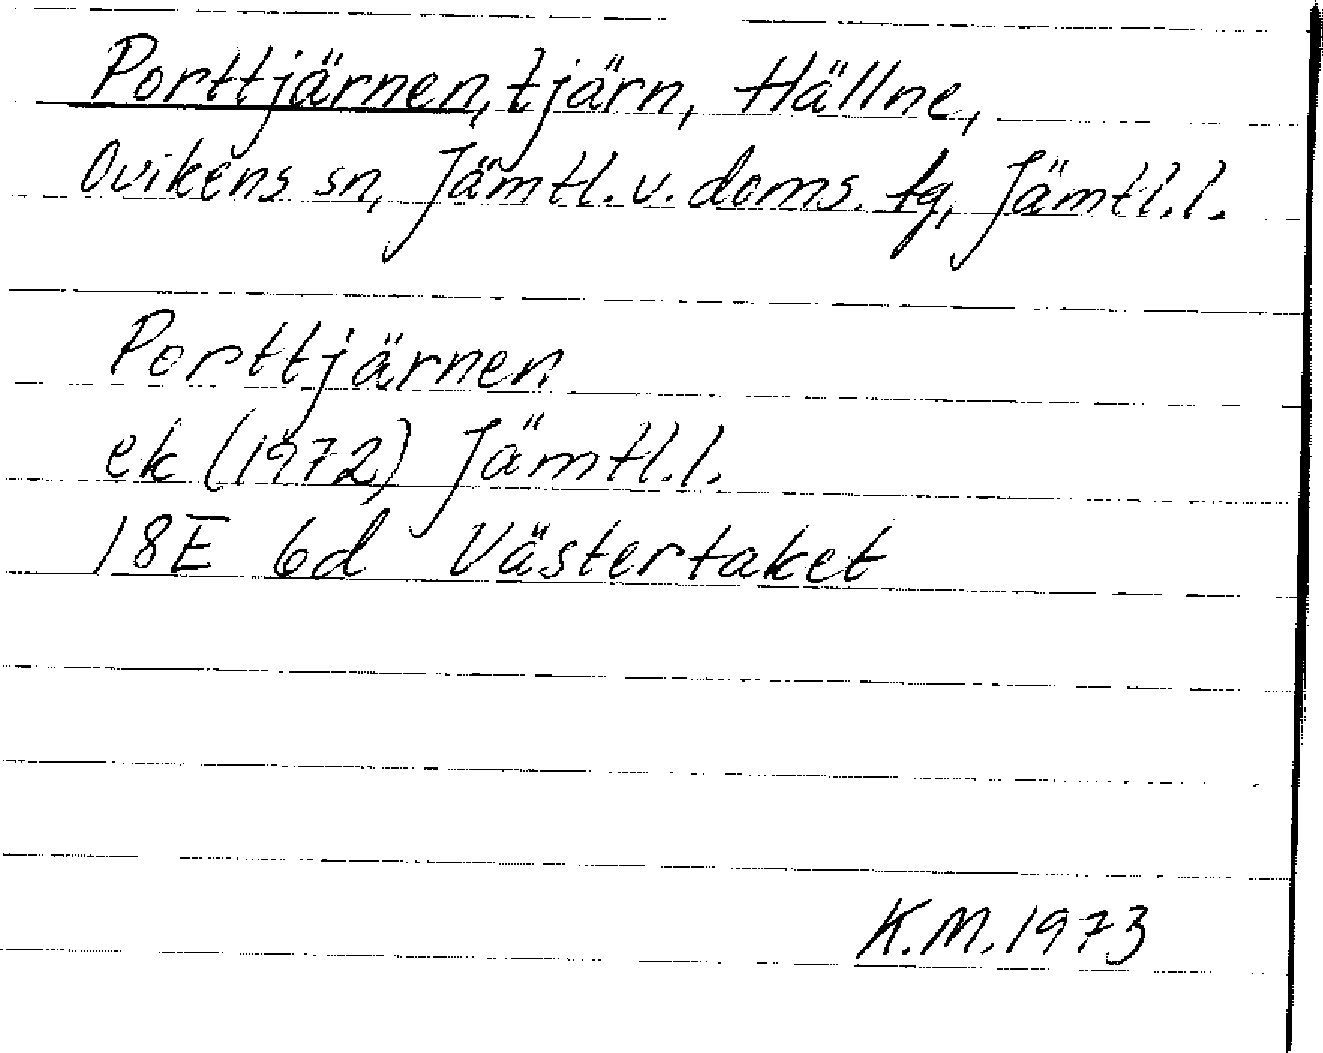 Porttjärnen, tjärn, Hällne,
Ovikens sn, Jämtl. v. doms. tg, Jämtl.l.
Porttjärnen
ek (1972) Jämtl.l.
18E 6d Västertaket
K.M. 1973